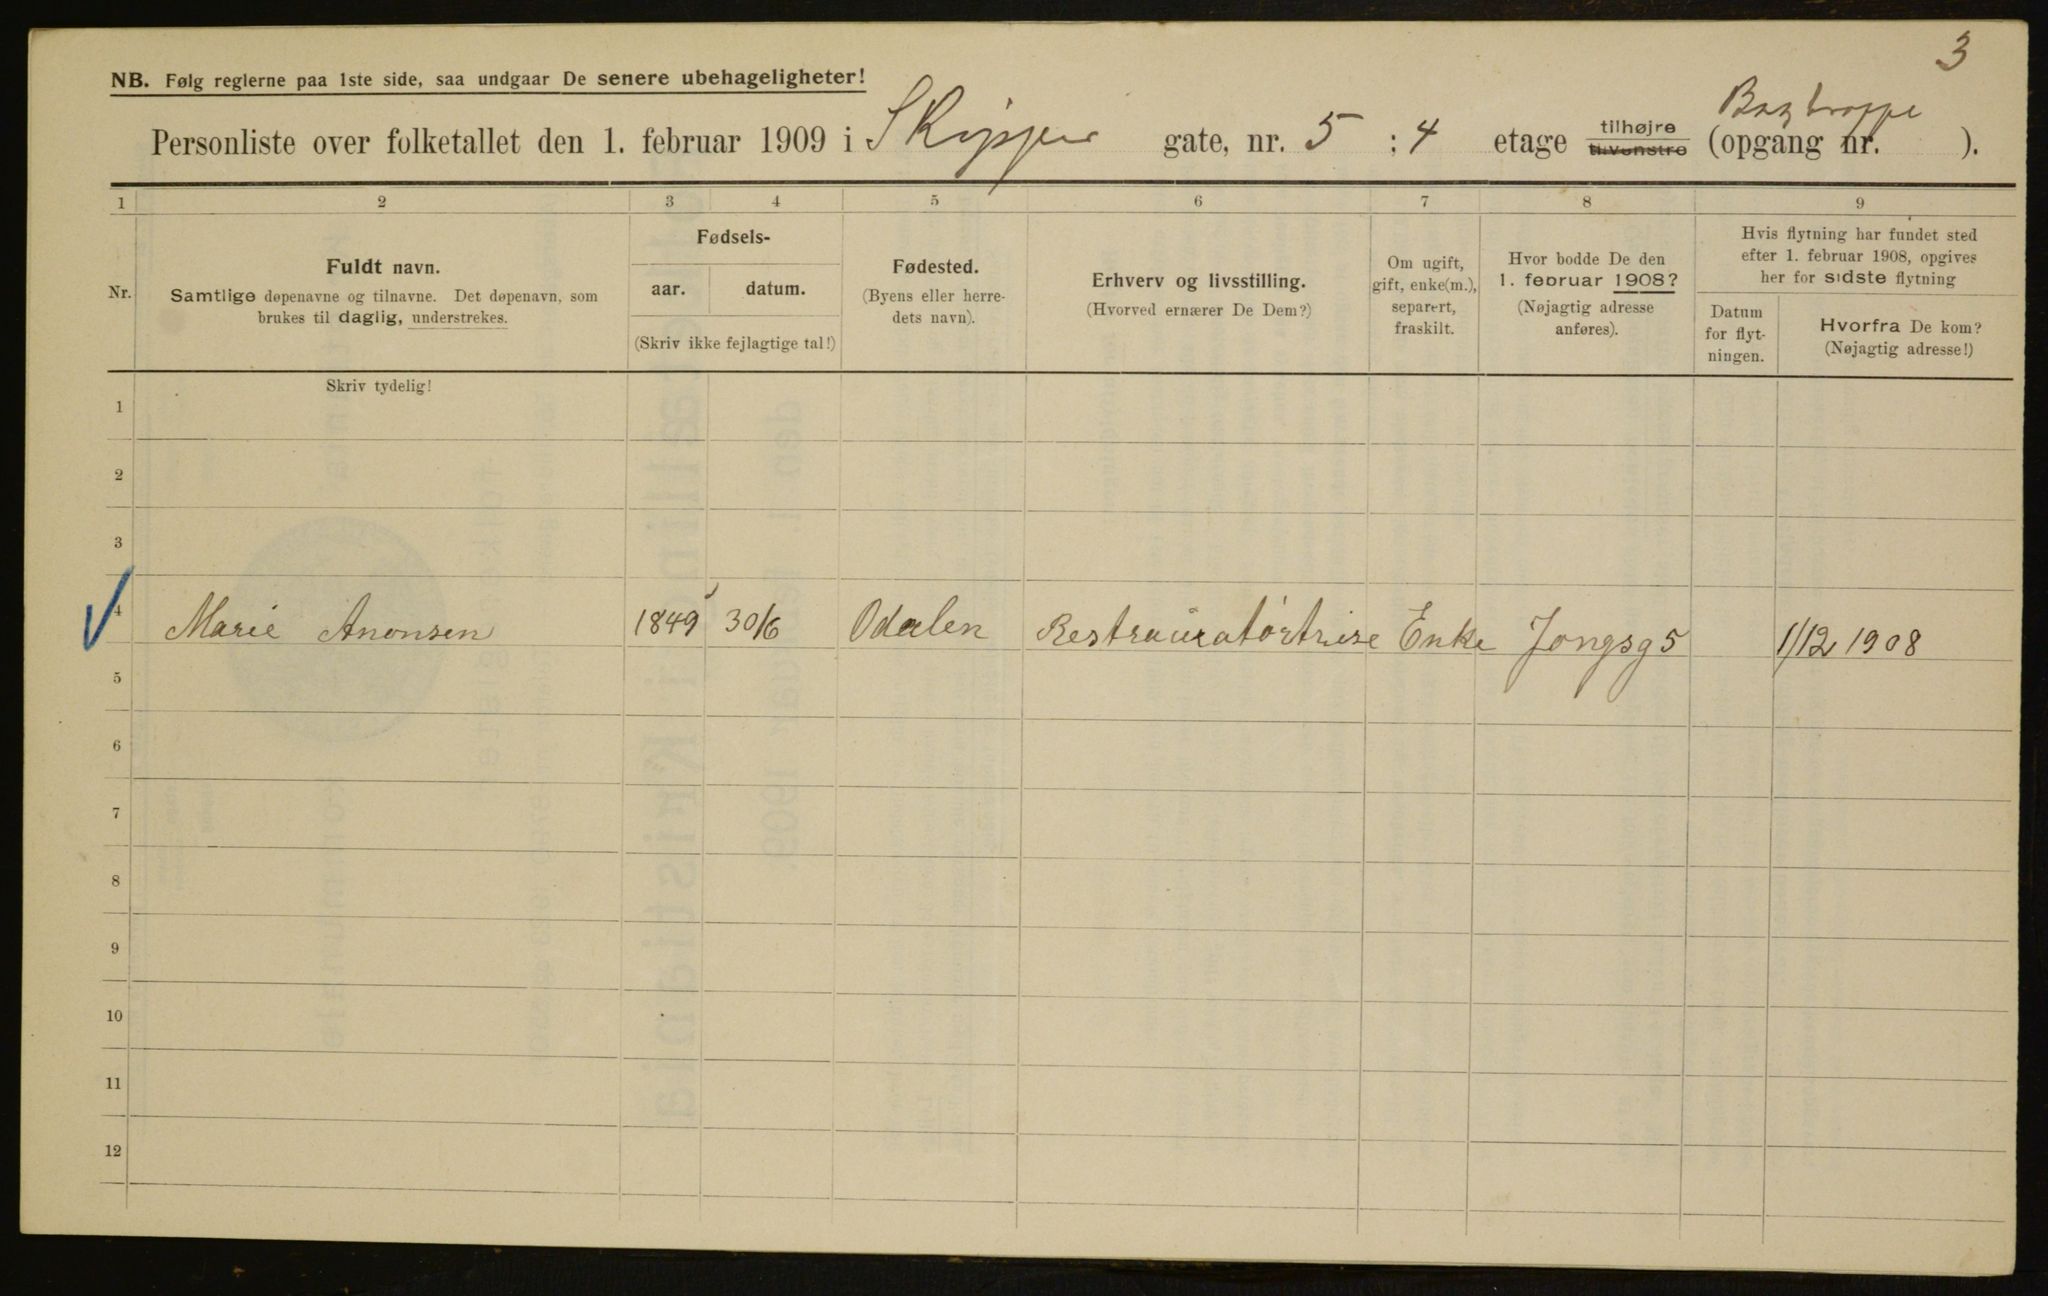 3
NB. Følg reglerne paa 1ste side, saa undgaar De senere ubehageligheter!
Bagtrappe
Personliste over folketallet den 1. februar 1909 i Skipper gate, nr. 5 ; 4 etage tilhøjre tilvenstre (opgang nr. ).
1 2 3 4 5 6 7 8 9
Nr.
Fuldt navn.
Samtlige døpenavne og tilnavne. Det døpenavn, som
brukes til daglig, understrekes.
Fødsels-
aar. datum.
(Skriv ikke fejlagtige tal!)
Fødested.
(Byens eller herre-
dets navn).
Erhverv og livsstilling.
(Hvorved ernærer De Dem?)
Om ugift,
gift, enke(m.),
separert,
fraskilt.
Hvor bodde De den
1. februar 1908?
(Nøjagtig adresse
anføres).
Hvis flytning har fundet sted
efter 1. februar 1908, opgives
her for sidste flytning
Datum
for flyt-
ningen.
Hvorfra De kom?
(Nøjagtig adresse!)
Skriv tydelig!
1
2
3
4 Marie Anonsen 1849 30/6 Odalen Restrauratørtrise Enke Jongsg 5 1/12 1908
5
6
7
8
9
10
11
12